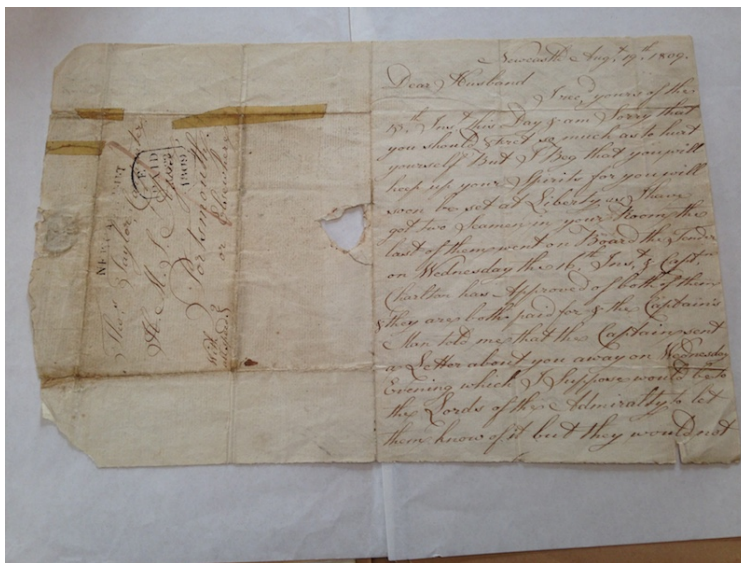 Newcastle Augt. 19th. 1809.
Dear Husband
I recd. yours of the
Inst. this Day & am Sorry that
you should fret so much as to hurt
yourself But I Beg that you will
keep up your Spirits for you will
soon be set at Liberty, as I have
got two Seamen in your Room, the
last of them went on Board the Tender
on Wednesday the 16th. Inst. & Captn.
Charlton has Approved of both of them
& they are both paid for & the Captain's
Man told me that the Captain sent
a Letter about you away on Wednesday
Evening which I Suppose would be to
the Lords of the Admiralty to let
them know of it but they would not
Thos. Taylor
H. M. S.
Portsmouth
or
Elsewhere
PAID
1809